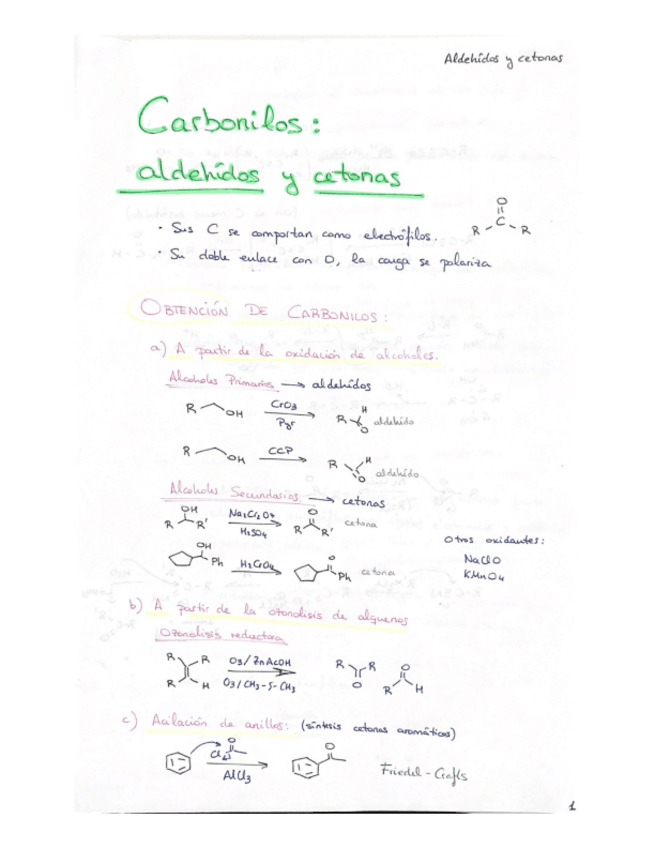 Aldehídos y cetonas
Carbonilos:
aldehídos y cetonas
· Sus C se comportan como electrófilos.
· Su doble enlace con O, la carga se polariza
O
C
R R
OBTENCIÓN DE CARBONILOS:
a) A partir de la oxidación de alcoholes.
Alcoholes Primarios → aldehídos
R OH CrO3 Pyr R H O aldehído
R OH CCP R H O aldehído
Alcoholes Secundarios → cetonas
OH R R' Na2Cr2O7 H2SO4 O R R' cetona
OH Ph H2CrO4 O Ph cetona
Otros oxidantes:
NaClO
KMnO4
b) A partir de la ozonolisis de alquenos
Ozonolisis reductora
R R R H O3/ZnAcOH O3/CH3-S-CH3 R R O O R H
c) Acilación de anillos: (síntesis cetonas aromáticas)
O Cl AlCl3 O Friedel-Crafts
1